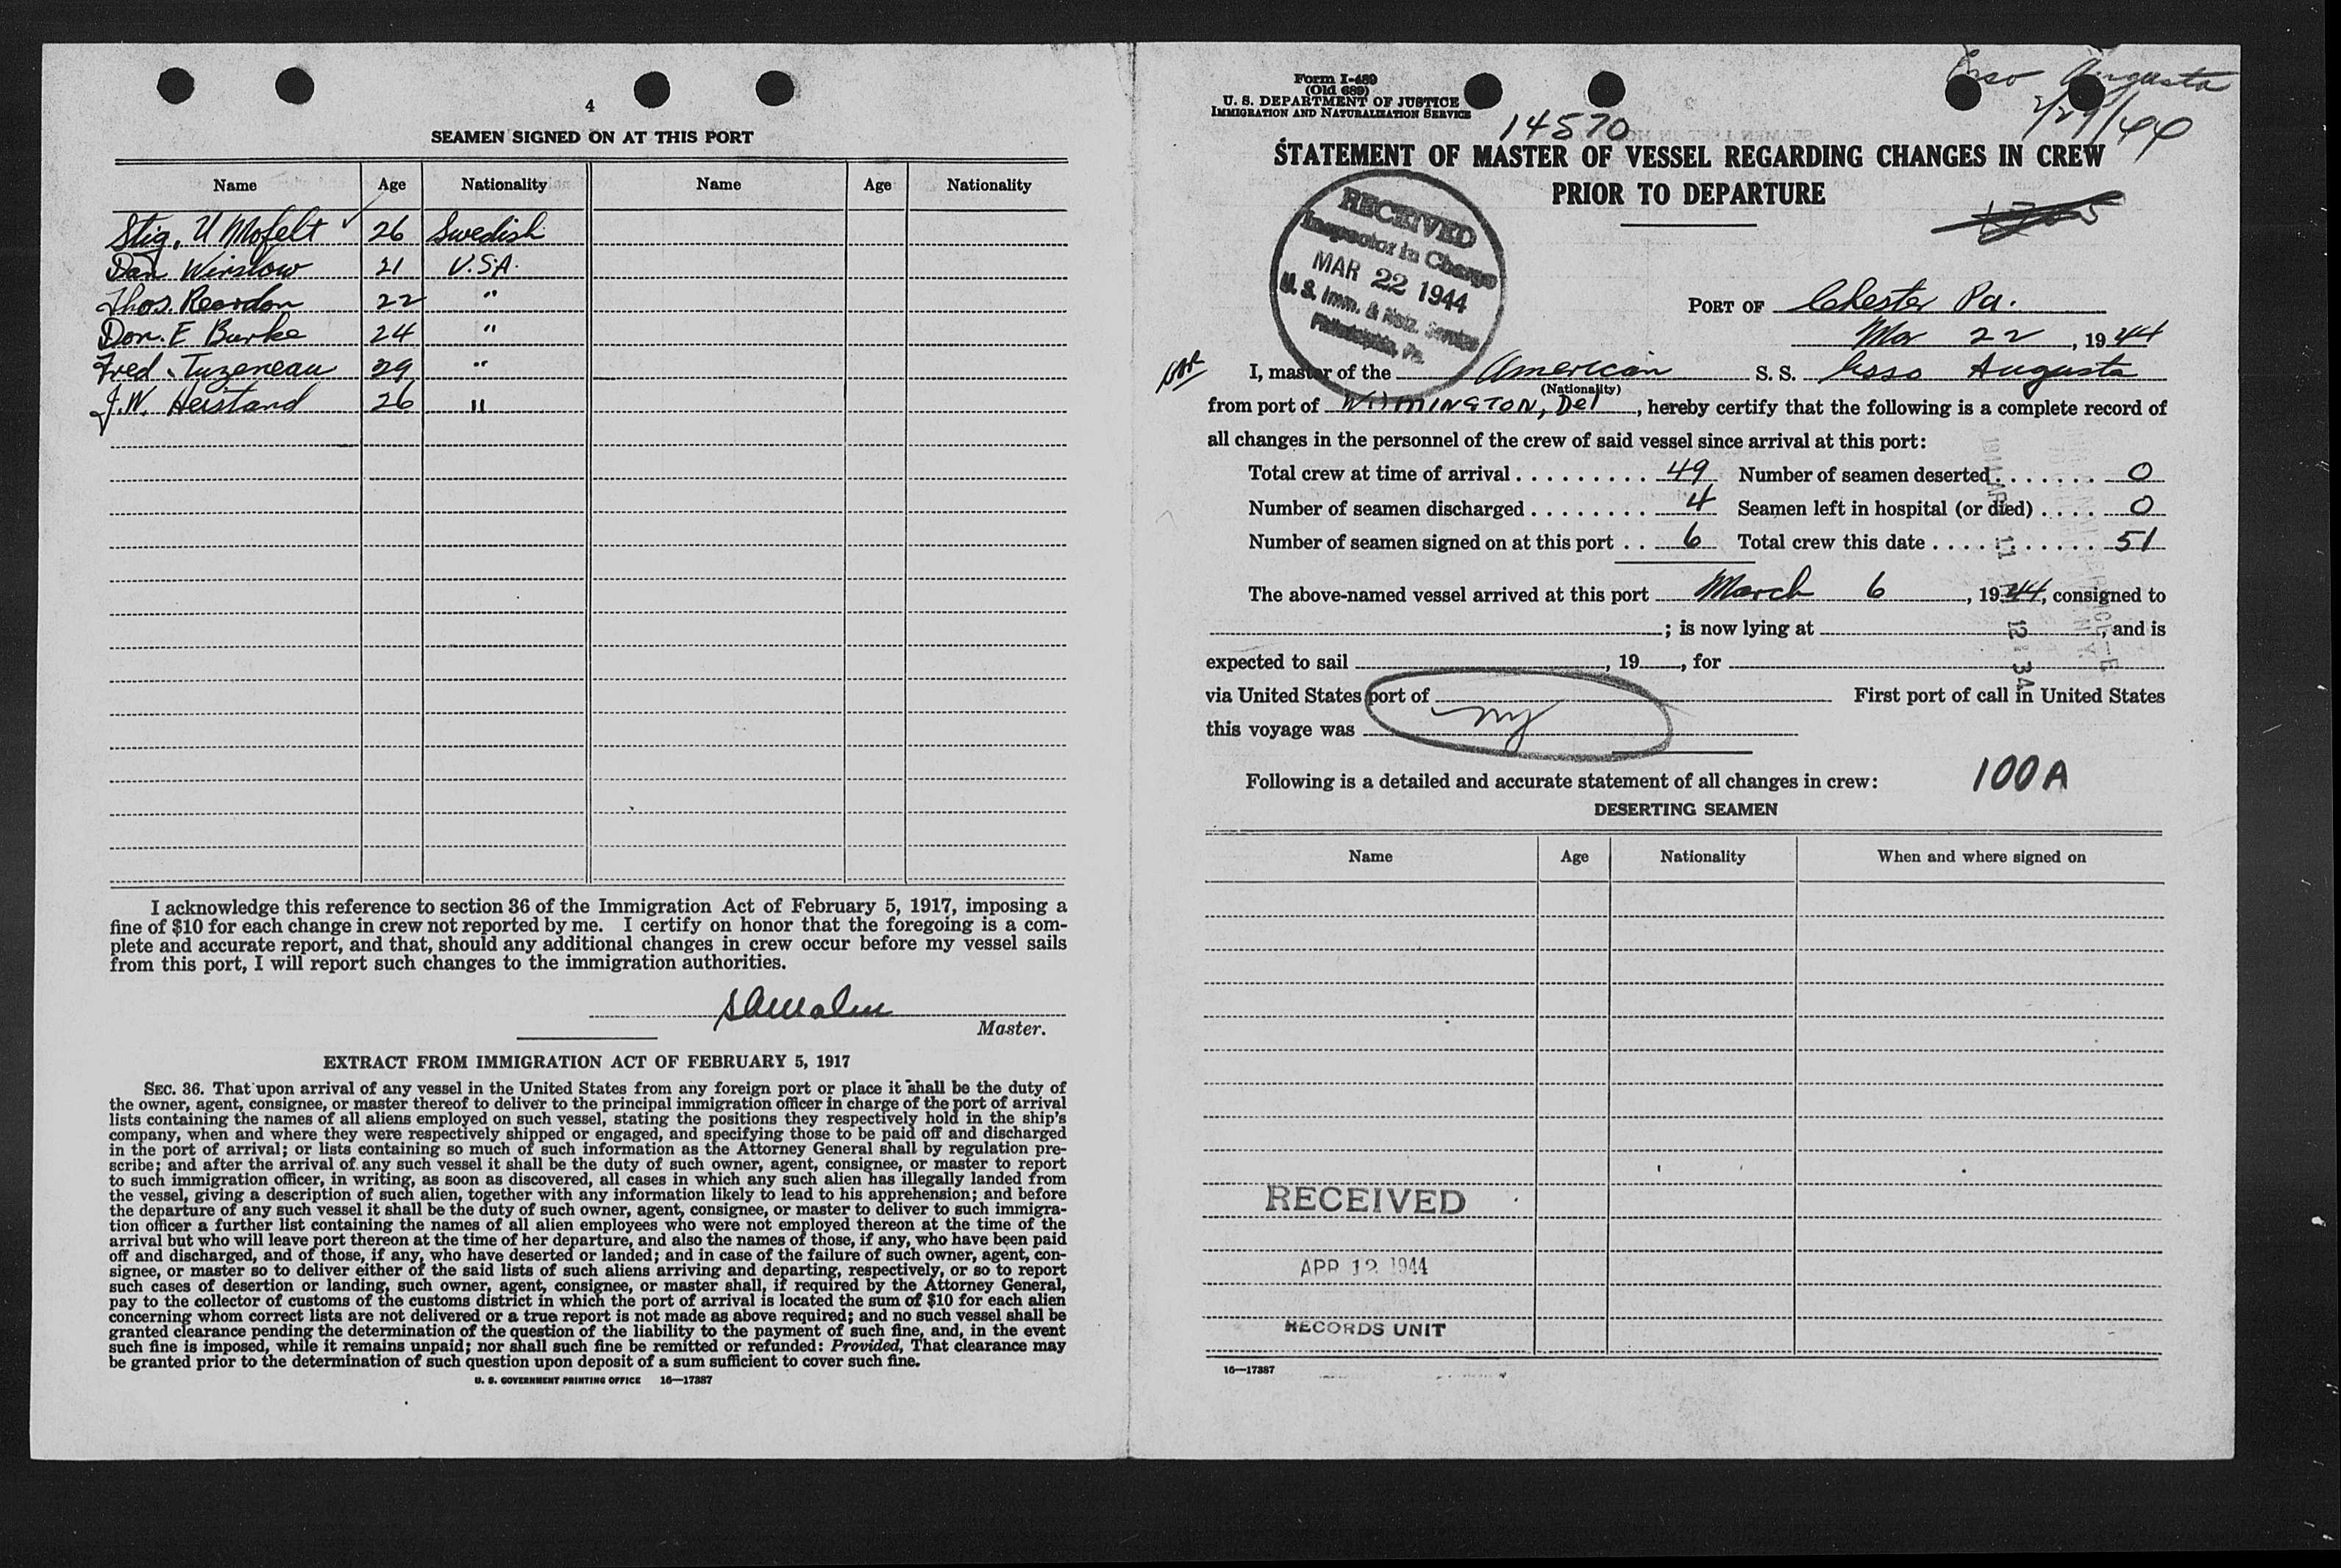 4
SEAMEN SIGNED ON AT THIS PORT
Name Age Nationality Name Age Nationality
Stig. U Mofelt ✓ 26 Swedish
Dan Winslow 21 U.S.A.
Thos. Reardon 22 "
Don. E Burke 24 "
Fred. Tuzeneau 29 "
J.W. Heistand 26 "
I acknowledge this reference to section 36 of the Immigration Act of February 5, 1917, imposing a
fine of $10 for each change in crew not reported by me. I certify on honor that the foregoing is a com-
plete and accurate report, and that, should any additional changes in crew occur before my vessel sails
from this port, I will report such changes to the immigration authorities.
Master.
EXTRACT FROM IMMIGRATION ACT OF FEBRUARY 5, 1917
SEC. 36. That upon arrival of any vessel in the United States from any foreign port or place it shall be the duty of
the owner, agent, consignee, or master thereof to deliver to the principal immigration officer in charge of the port of arrival
lists containing the names of all aliens employed on such vessel, stating the positions they respectively hold in the ship's
company, when and where they were respectively shipped or engaged, and specifying those to be paid off and discharged
in the port of arrival; or lists containing so much of such information as the Attorney General shall by regulation pre-
scribe; and after the arrival of any such vessel it shall be the duty of such owner, agent, consignee, or master to report
to such immigration officer, in writing, as soon as discovered, all cases in which any such alien has illegally landed from
the vessel, giving a description of such alien, together with any information likely to lead to his apprehension; and before
the departure of any such vessel it shall be the duty of such owner, agent, consignee, or master to deliver to such immigra-
tion officer a further list containing the names of all alien employees who were not employed thereon at the time of the
arrival but who will leave port thereon at the time of her departure, and also the names of those, if any, who have been paid
off and discharged, and of those, if any, who have deserted or landed; and in case of the failure of such owner, agent, con-
signee, or master so to deliver either of the said lists of such aliens arriving and departing, respectively, or so to report
such cases of desertion or landing, such owner, agent, consignee, or master shall, if required by the Attorney General,
pay to the collector of customs of the customs district in which the port of arrival is located the sum of $10 for each alien
concerning whom correct lists are not delivered or a true report is not made as above required; and no such vessel shall be
granted clearance pending the determination of the question of the liability to the payment of such fine, and, in the event
such fine is imposed, while it remains unpaid; nor shall such fine be remitted or refunded: Provided, That clearance may
be granted prior to the determination of such question upon deposit of a sum sufficient to cover such fine.
U. S. GOVERNMENT PRINTING OFFICE 16—17387
Form I-489
(Old 689)
U. S. DEPARTMENT OF JUSTICE
IMMIGRATION AND NATURALIZATION SERVICE
Esso Augusta
2/29/44
14570
STATEMENT OF MASTER OF VESSEL REGARDING CHANGES IN CREW
PRIOR TO DEPARTURE
RECEIVED
Inspector in Charge
MAR 22 1944
U. S. Imm. & Natz. Service
Philadelphia, Pa.
PORT OF Chester Pa.
Mar 22, 1944
I, master of the American S. S. Esso Augusta
(Nationality)
from port of WILMINGTON, Del, hereby certify that the following is a complete record of
all changes in the personnel of the crew of said vessel since arrival at this port:
Total crew at time of arrival . . . . . . . . . . 49 Number of seamen deserted . . . . . . . 0
Number of seamen discharged . . . . . . . . 4 Seamen left in hospital (or died) . . . . 0
Number of seamen signed on at this port . . 6 Total crew this date . . . . . . . . . . 51
The above-named vessel arrived at this port March 6, 1944, consigned to
; is now lying at , and is
expected to sail , 19 , for
via United States port of First port of call in United States
this voyage was NY
Following is a detailed and accurate statement of all changes in crew: 100A
DESERTING SEAMEN
Name Age Nationality When and where signed on
RECEIVED
APR 12 1944
RECORDS UNIT
16—17387